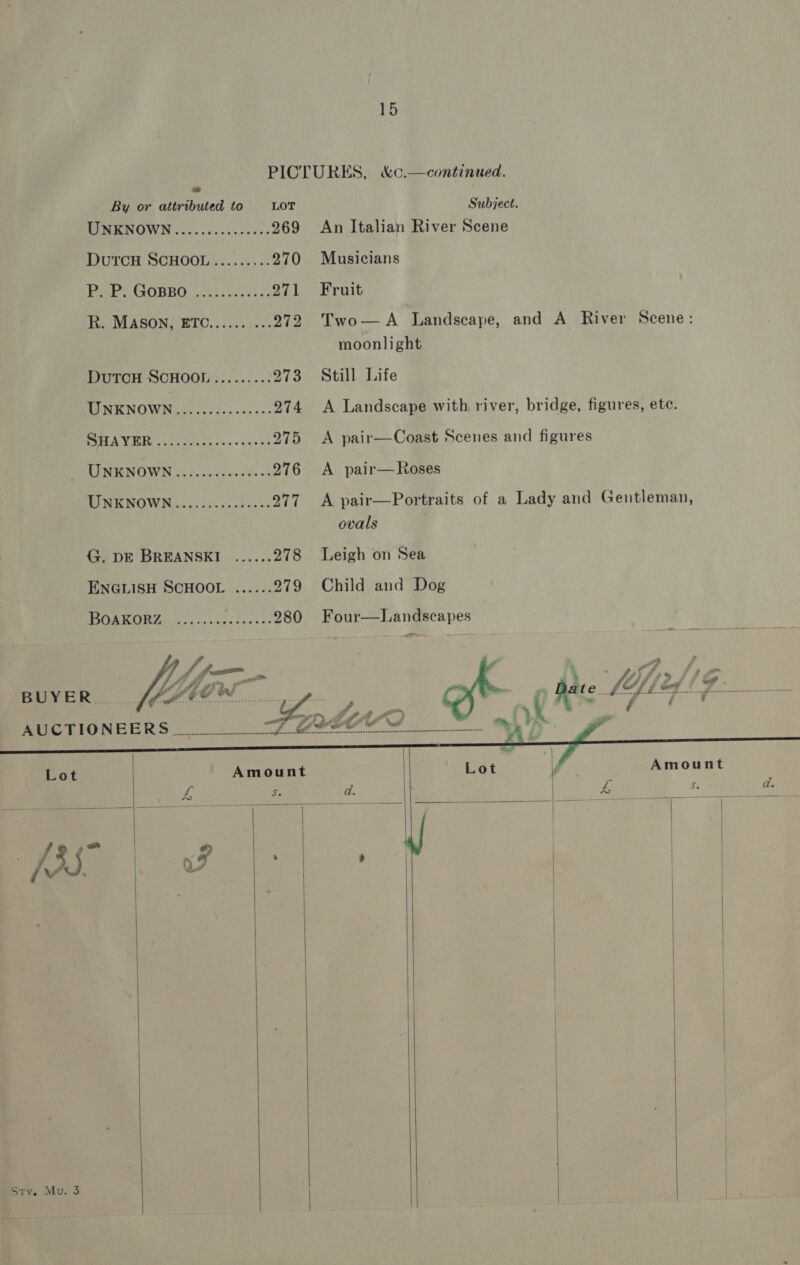 15
PICTURES, &c.—continued.
By or attributed to LOT Subject.
UNKNOWN...............269 An Italian River Scene
DUTCH SCHOOL.........270 Musicians
P. P. GOBBO ............271 Fruit
R. MASON, ETC...... ...272 Two — A Landscape, and A River Scene:
moonlight
DUTCH SCHOOL.........273 Still Life
UNKNOWN...............274 A Landscape with river, bridge, figures, etc.
SHAYER ..................275 A pair—Coast Scenes and figures
UNKNOWN...............276 A pair—Roses
UNKNOWN...............277 A pair—Portraits of a Lady and Gentleman,
ovals
G. DE BREANSKI ......278 Leigh on Sea
ENGLISH SCHOOL ......279 Child and Dog
BOAKORZ ...............280 Four—Landscapes
BUYER Date
AUCTIONEERS
Lot Amount Lot Amount
£ s. d. £ s. d.
135 3 . .
STV. MU. 3